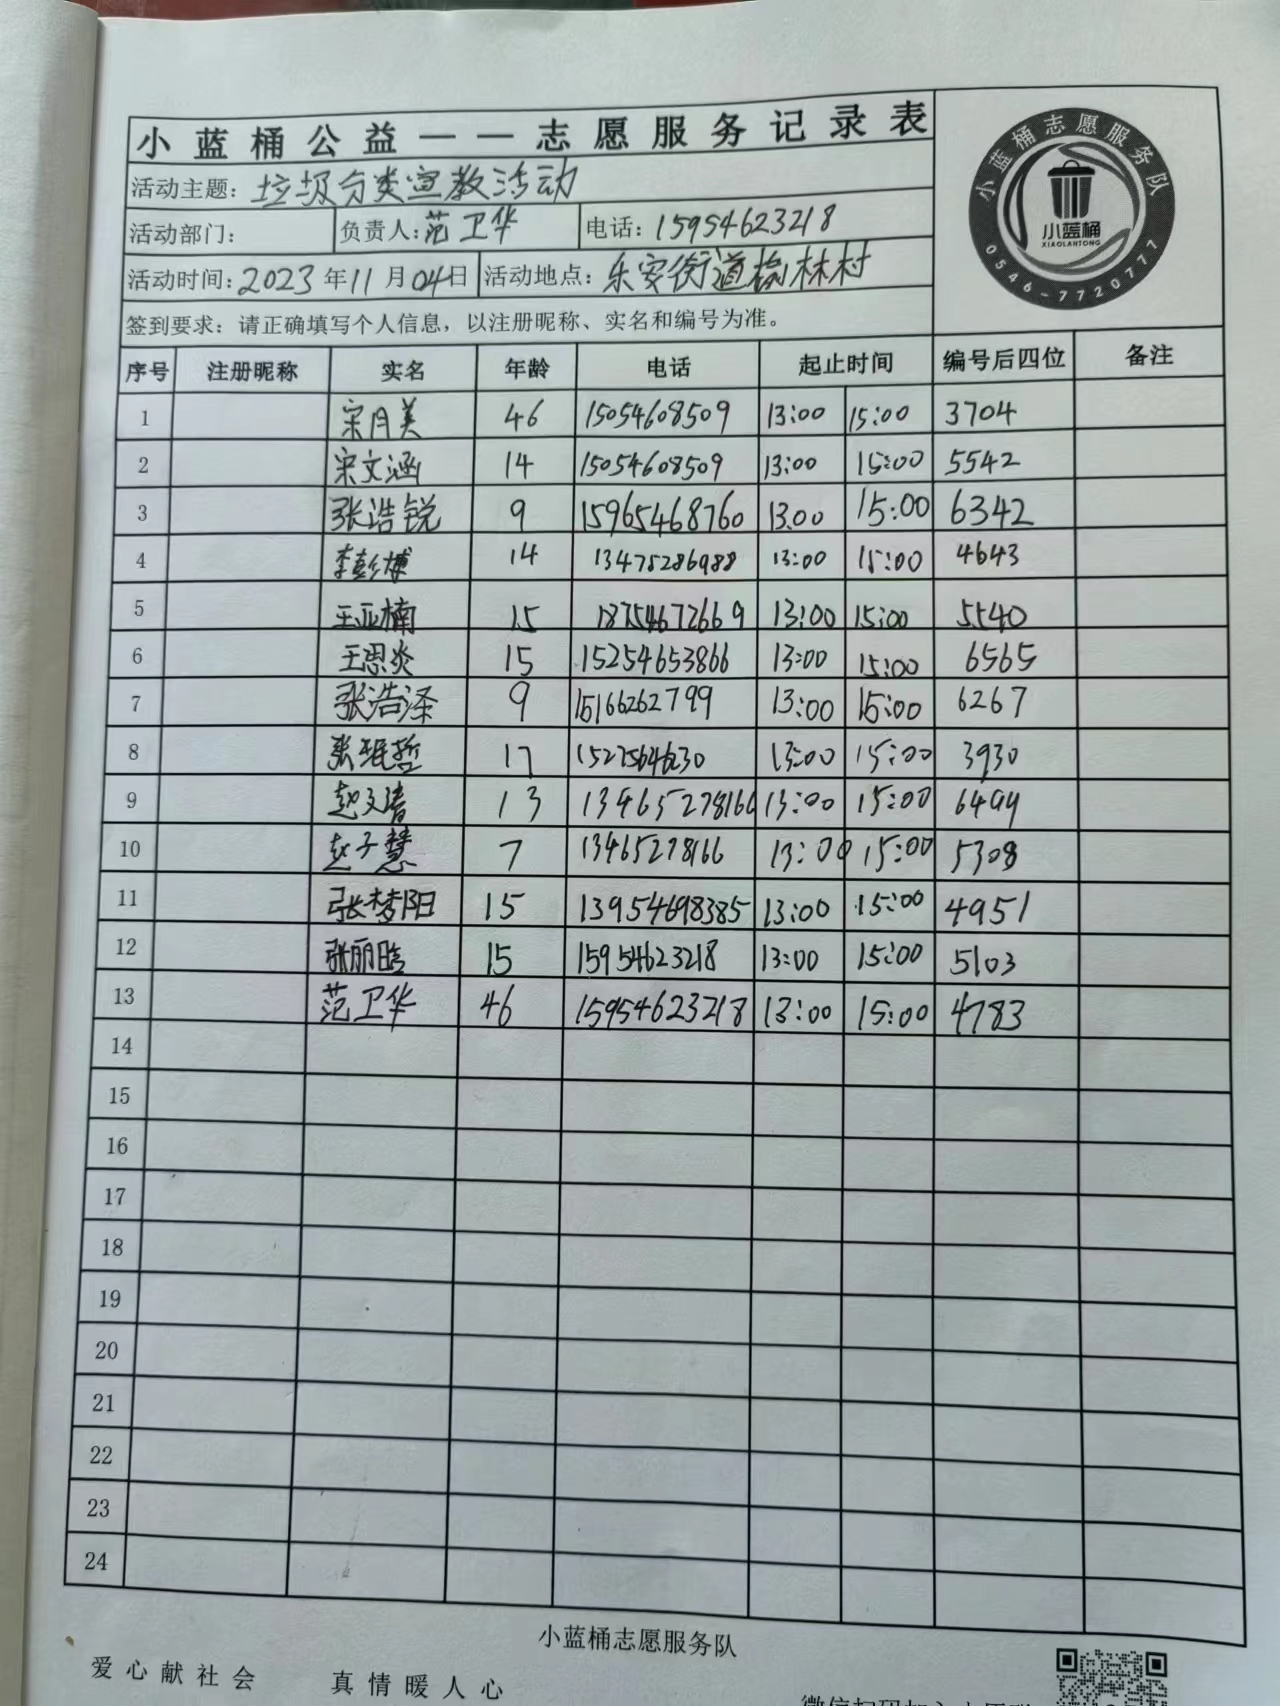 小蓝桶公益——志愿服务记录表
小蓝桶志愿服务队
小蓝桶
XIAOLANTONG
0546-7720777
活动主题：垃圾分类宣教活动
活动部门： 负责人：范卫华 电话：15954623218
活动时间：2023年11月04日 活动地点：乐安街道榆林村
签到要求：请正确填写个人信息，以注册昵称、实名和编号为准。
序号 注册昵称 实名 年龄 电话 起止时间 编号后四位 备注
1 宋月美 46 15054608509 13:00 15:00 3704
2 宋文涵 14 15054608509 13:00 15:00 5542
3 张浩锐 9 15965468760 13:00 15:00 6342
4 李彭博 14 13475286988 13:00 15:00 4643
5 王亚楠 15 18754672669 13:00 15:00 5540
6 王思炎 15 15254653866 13:00 15:00 6565
7 张浩泽 9 15166262799 13:00 15:00 6267
8 张珉哲 17 13:00 15:00 3930
9 赵文清 13 13465278166 13:00 15:00 6494
10 赵子慧 7 13465278166 13:00 15:00 5308
11 张梦阳 15 13954698385 13:00 15:00 4951
12 张丽晗 15 15954623218 13:00 15:00 5103
13 范卫华 46 15954623218 13:00 15:00 4783
14
15
16
17
18
19
20
21
22
23
24
小蓝桶志愿服务队
爱心献社会 真情暖人心